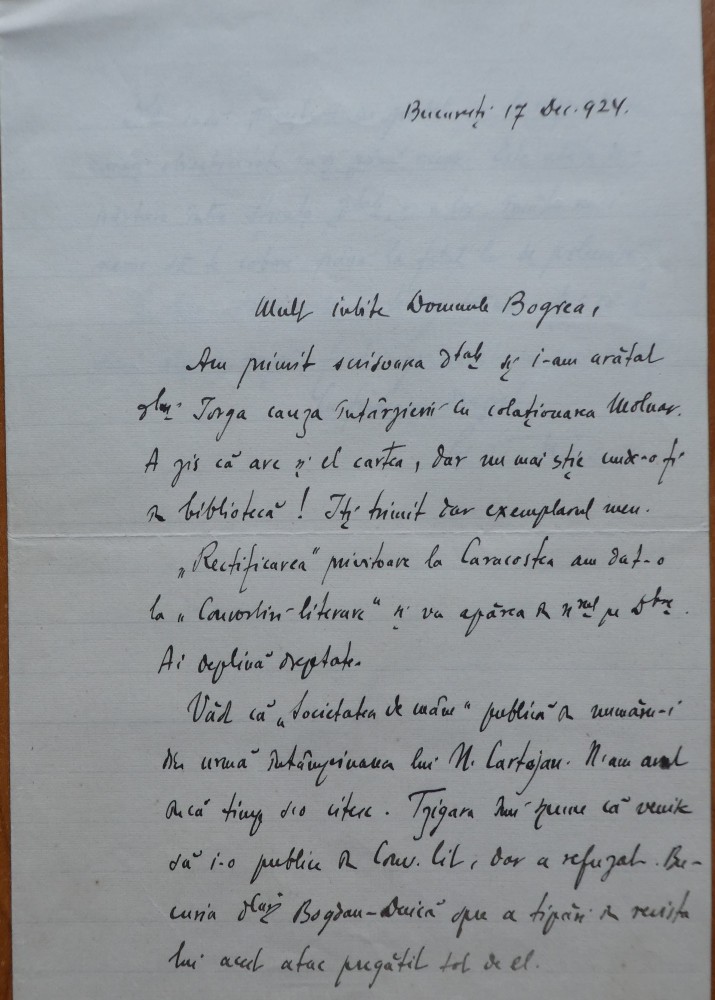 București 17 Dec. 924.
Mult iubite Domnule Bogrea,
Am primit scrisoarea dtale și i-am arătat
dlui Iorga cauza întârzierii cu colaționarea Molnar.
A zis că are și el cartea, dar nu mai știe unde-o fi
în bibliotecă! Iți trimit dar exemplarul meu.
„Rectificarea" privitoare la Caracostea am dat-o
la „Convorbiri literare" și va apărea în nrul pe Dbre.
Ai deplină dreptate.
Văd că „Societatea de mâine" publică în număru-i
din urmă întâmpinarea lui N. Cartojan. N-am avut
încă timp s-o citesc. Tzigara îmi spune că venise
să i-o publice în Conv. Lit, dar a refuzat. Bu-
curia dlui Bogdan-Duică spre a tipări în revista
lui acest atac pregătit tot de el.